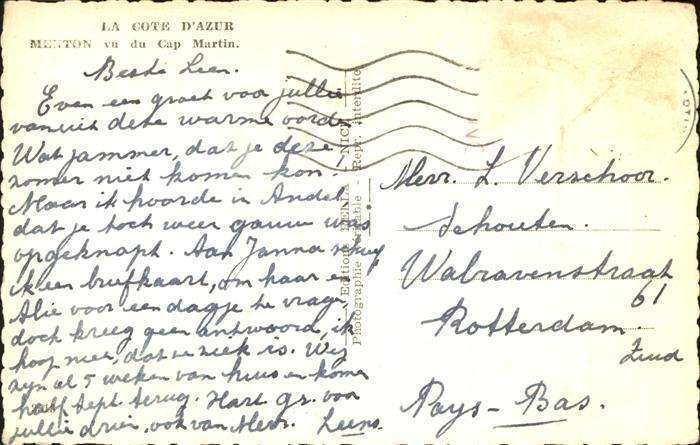 LA COTE D'AZUR
MENTON vu du Cap Martin.
Beste Leen.
Even een groet voor jullie
vanuit deze warme oorden
Wat jammer, dat je deze
zomer niet komen kon!
Maar ik hoorde in Andel
dat je toch weer gauw was
opgeknapt. Aan Janna schreef
ik een briefkaart, om haar en
Alie voor een dagje te vragen
doch kreeg geen antwoord, ik
hoop niet, dat ze ziek is. Wij
zijn al 5 weken van huis en komen
half Sept. terug. Hart. gr. voor
jullie drieën, ook van Mevr. Leens.
Editions
NICE
Photographie véritable - Repr. interdite
Mevr. L. Verschoor.
Schouten.
Walravenstraat
61
Rotterdam.
Zuid
Pays-Bas.